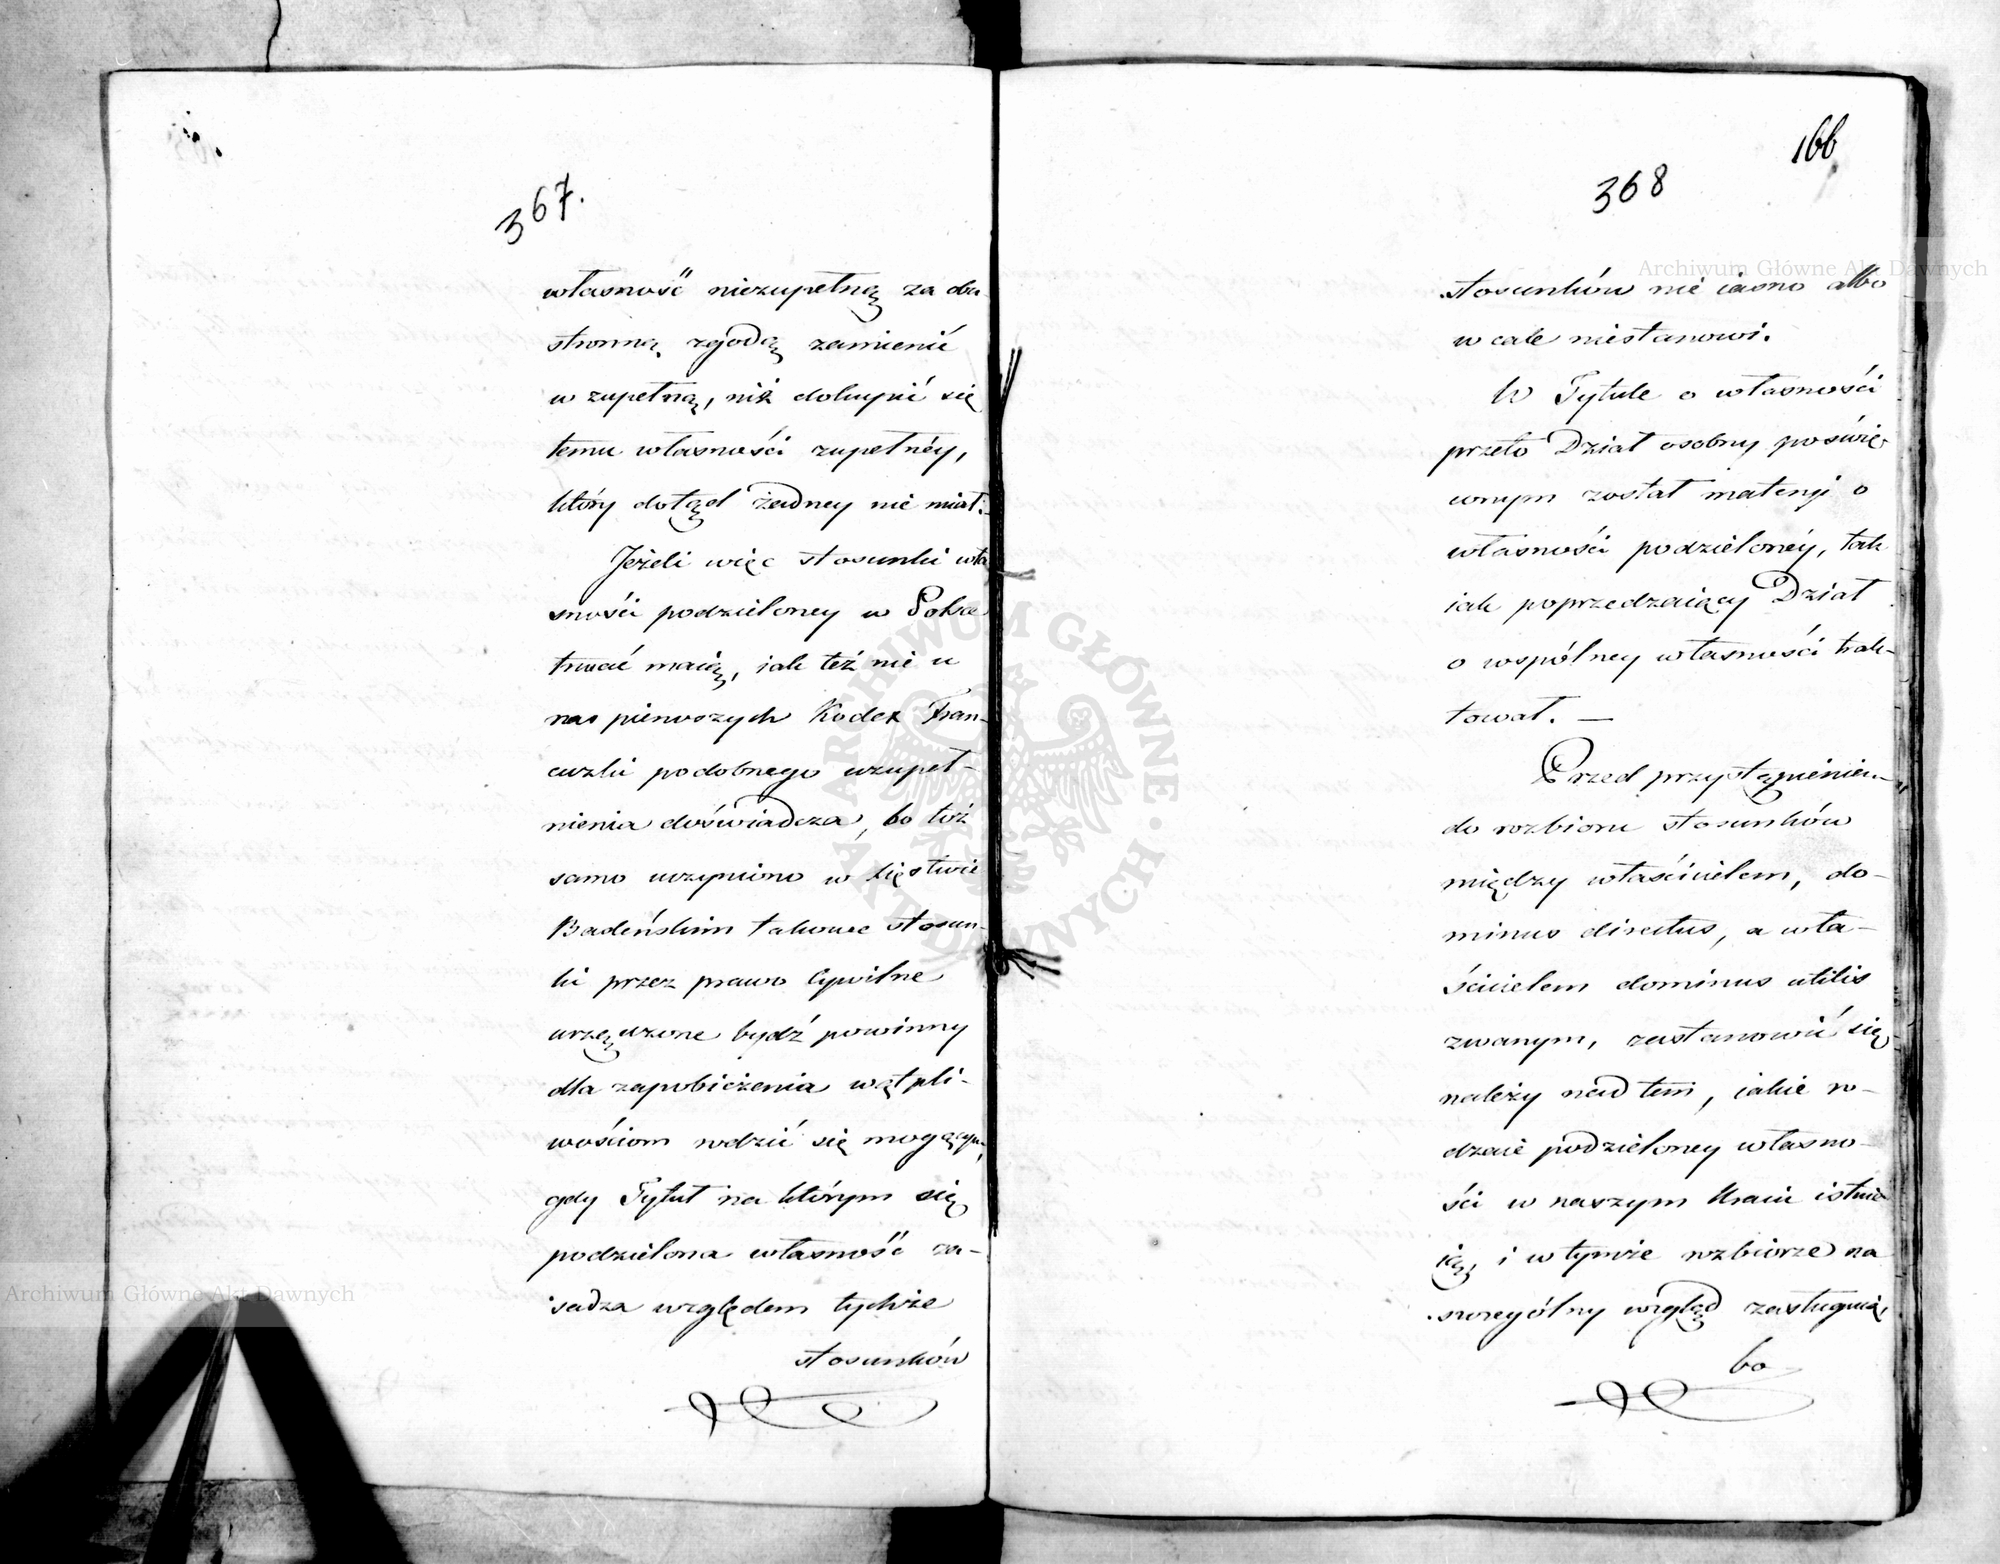 367.
własność niezupełną za obu
stronną zgodą zamienić
w zupełną, niż dokupić się
temu własności zupełnéy,
który dotąd żadney nie miał.
Jeżeli więc stosunki wła
sności podzieloney w Polsce
trwać maią, iak też nie u
nas pierwszych Kodex Fran-
cuzki podobnego uzupeł-
nienia doświadcza, bo toż
samo uczyniono w Xięstwie
Badeńskim takowe stosun-
ki przez prawo Cywilne
urządzone bydź powinny
dla zapobieżenia wątpli-
wościom rodzić się mogącym,
gdy Tytuł na którym się
podzielona własność za-
sadza względem tychże
stosunków
166
368
stosunków nie iasno albo
w cale niestanowi.
W Tytule o własności
przeto Dział osobny poświę-
conym został materyi o
własności podzielonéy, tak
iak poprzedzaiący Dział
o wspólney własności trak-
tował. —
Przed przystąpieniem
do rozbioru stosunków
między właścicielem, do-
minus directus, a wła-
ścicielem dominus utilis
zwanym, zastanowić się
należy nad tem, jakie ro-
dzaie podzieloney własno-
ści w naszym Kraiu istnie
ią, i w tymże rozbiorze na
szczególny wzgląd zasługuią,
bo
Archiwum Główne Akt Dawnych
Archiwum Główne Akt Dawnych
ARCHIWUM GŁÓWNE AKT DAWNYCH